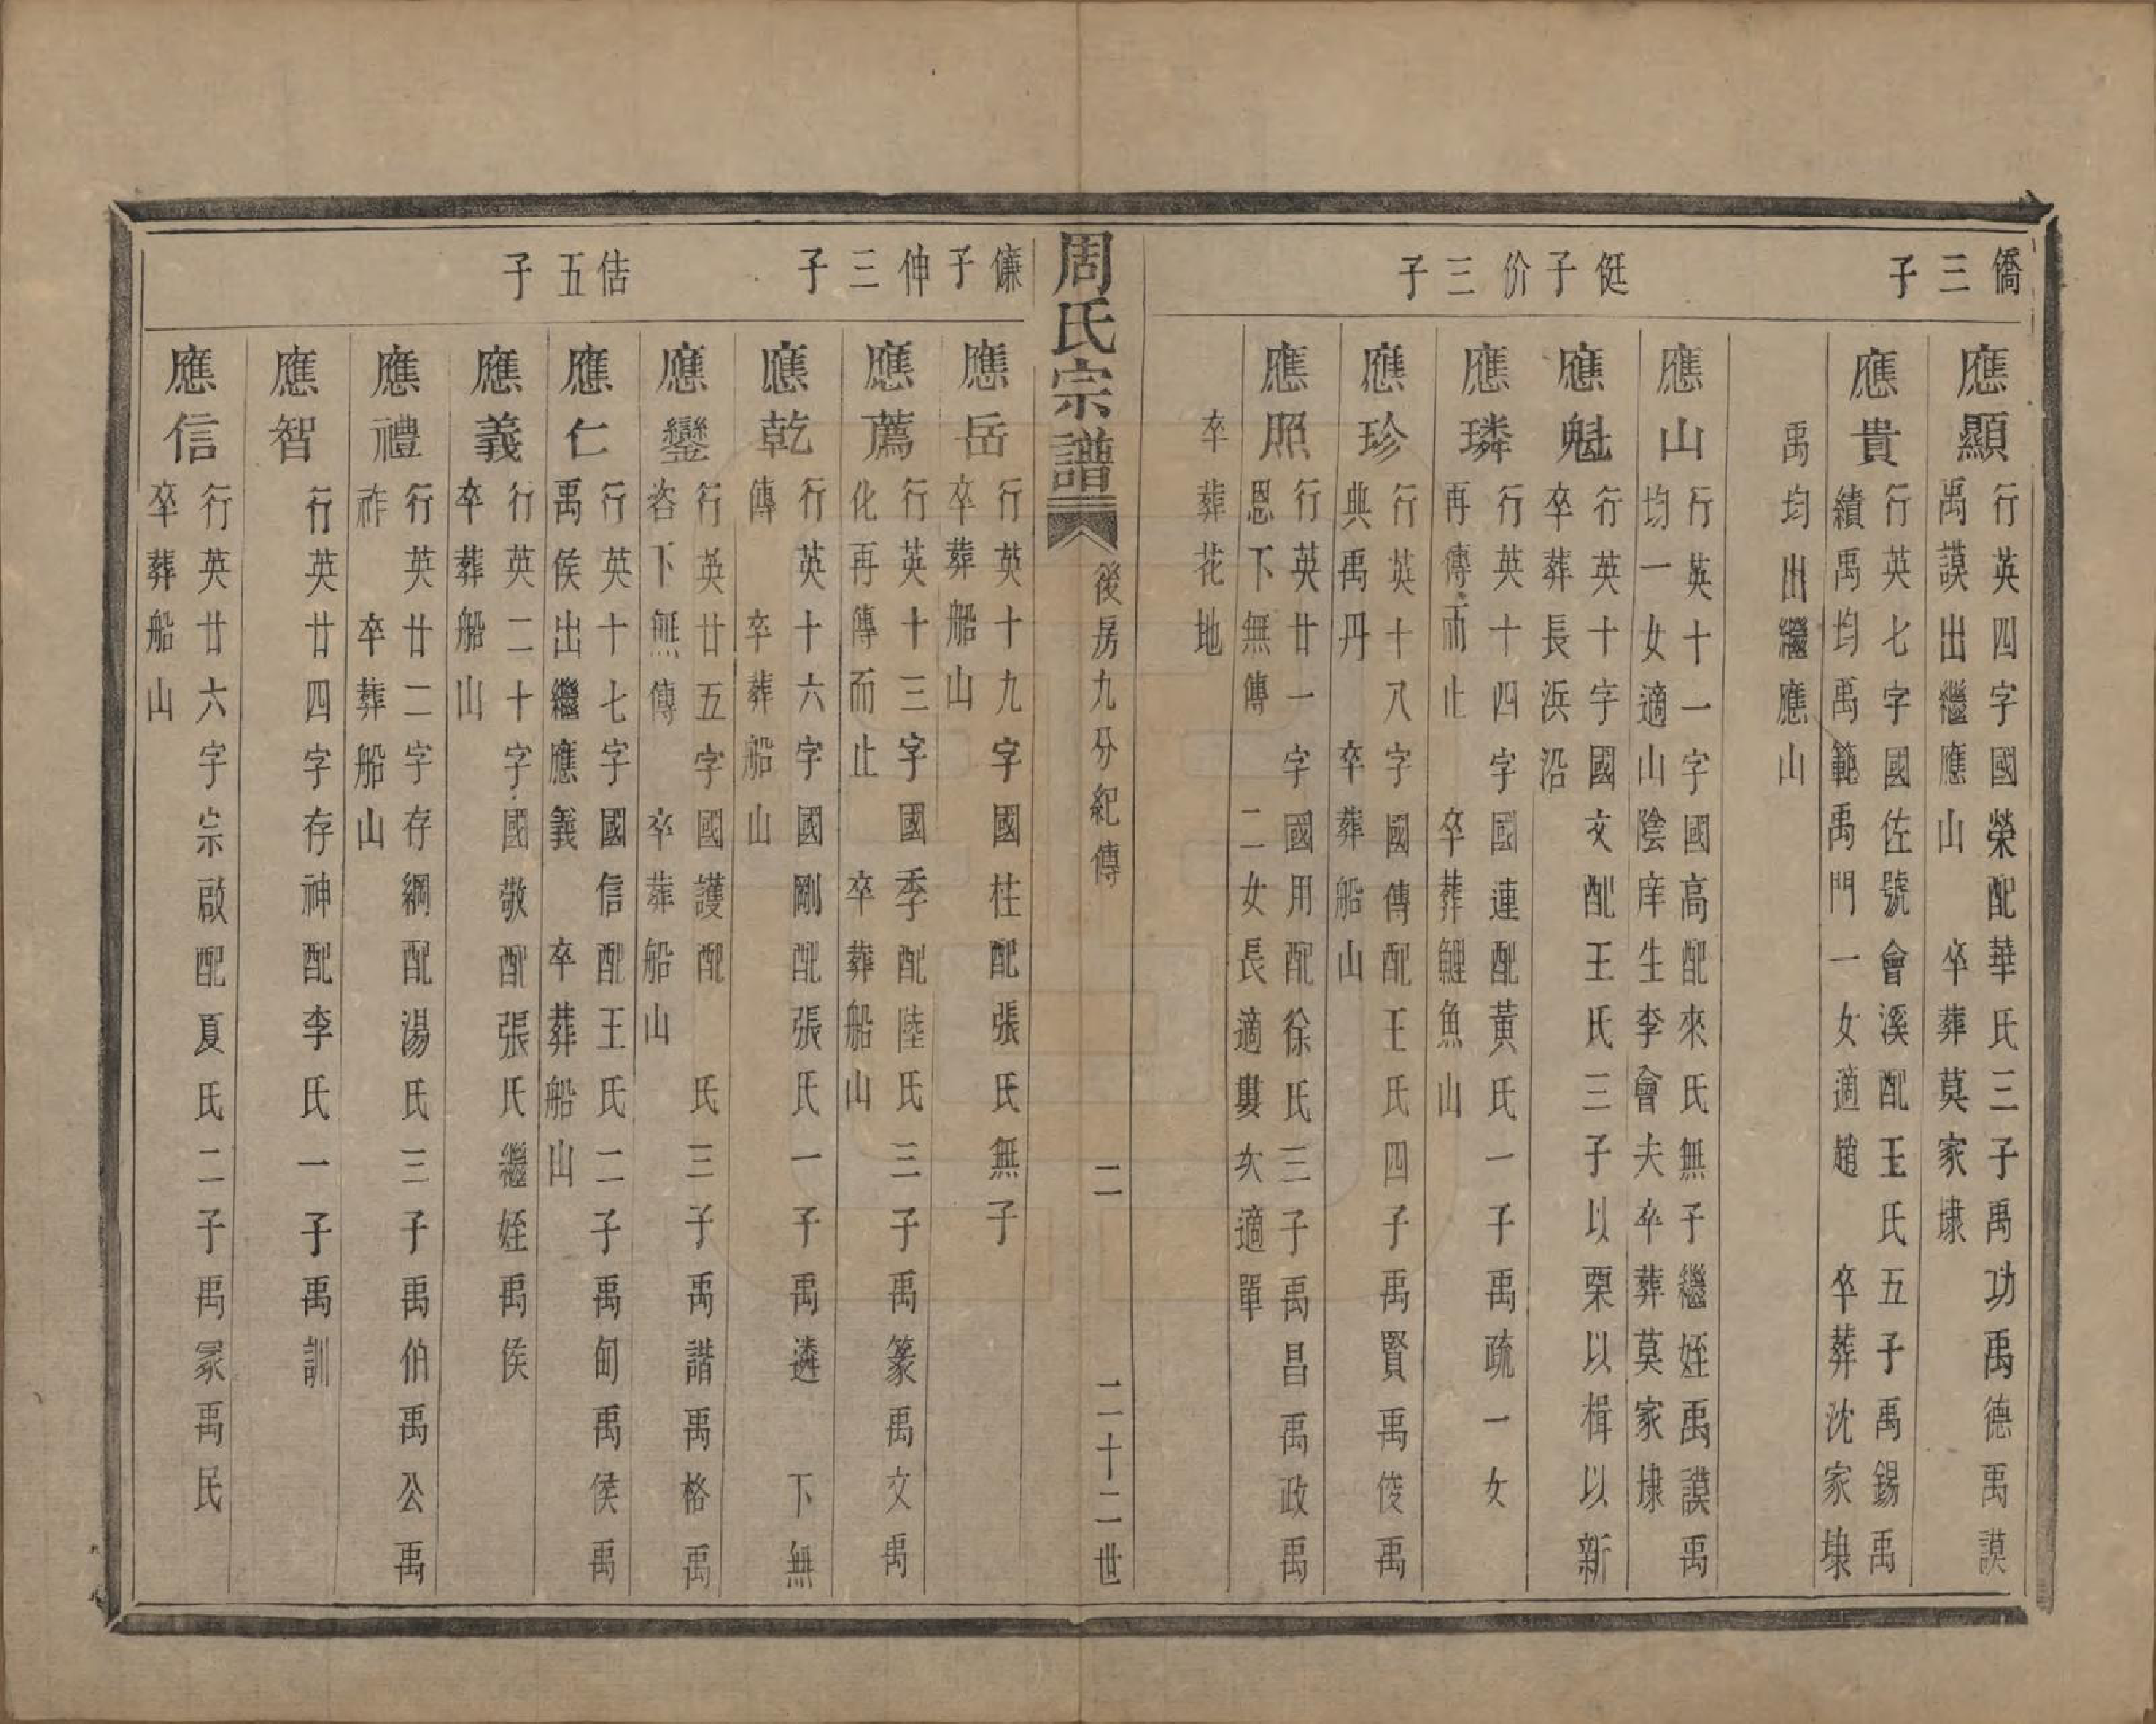 僑三子
應顯
行英四字國榮配華氏三子禹功禹德禹謨
禹謨出繼應山　卒葬莫家埭
應貴
行英七字國佐號會溪配王氏五子禹錫禹
績禹均禹範禹門一女適趙　卒葬沈家埭
禹均出繼應山
侹子价三子
應山
行英十一字國高配來氏無子繼姪禹謨禹
均一女適山陰庠生李會夫卒葬莫家埭
應魁
行英十字國文配王氏三子以栗以楫以新
卒葬長浜沿
應璘
行英十四字國連配黃氏一子禹疏一女
再傳而止　卒葬鯉魚山
應珍
行英十八字國傳配王氏四子禹賢禹俊禹
典禹丹　卒葬船山
應照
行英廿一字國用配徐氏三子禹昌禹政禹
恩下無傳　二女長適婁次適單
卒葬花地
周氏宗譜
後房九分紀傳
二
二十二世
傔子伸三子
應岳
行英十九字國柱配張氏無子
卒葬船山
應薦
行英十三字國季配陸氏三子禹篆禹文禹
化再傳而止　卒葬船山
應乾
行英十六字國剛配張氏一子禹遴　下無
傳　卒葬船山
佶五子
應鑾
行英廿五字國護配　氏三子禹諧禹格禹
咨下無傳　卒葬船山
應仁
行英十七字國信配王氏二子禹甸禹侯禹
禹侯出繼應義　卒葬船山
應義
行英二十字國敬配張氏繼姪禹侯
卒葬船山
應禮
行英廿二字存綱配湯氏三子禹伯禹公禹
祚　卒葬船山
應智
行英廿四字存神配李氏一子禹訓
應信
行英廿六字宗啟配夏氏二子禹冢禹民
卒葬船山